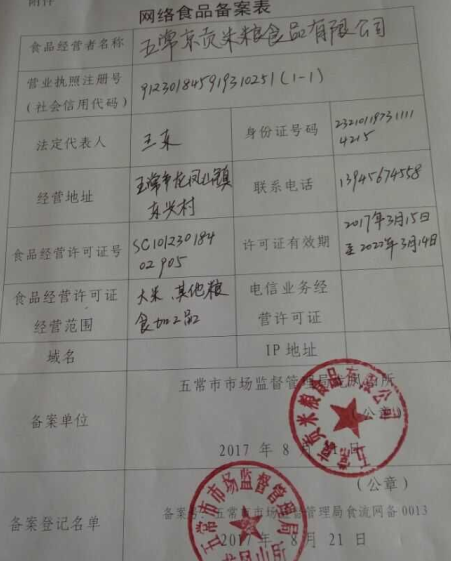 附件
网络食品备案表
食品经营者名称 五常京贡米粮食品有限公司
营业执照注册号
(社会信用代码) 912301845919310251(1-1)
法定代表人 王东 身份证号码 2321011973111
14215
经营地址 五常市龙凤山镇
东兴村 联系电话 13945674558
食品经营许可证号 SC101230184
02905 许可证有效期 2017年3月15日
至2022年3月14日
食品经营许可证
经营范围 大米、其他粮
食加工品 电信业务经
营许可证
域名 IP地址
五常市市场监督管理局龙凤山所
备案单位 (公章)
2017 年 8 月 21 日
五常京贡米粮食品有限公司
(公章)
备案登记名单 备案号:五常市市场监督管理局食流网备0013
2017 . 8 月 21 日
五常市市场监督管理局
龙凤山所